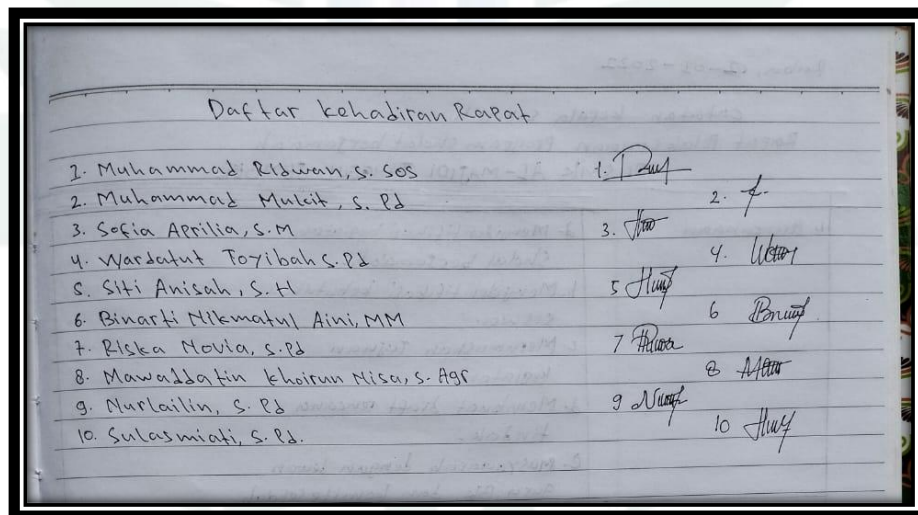 Daftar kehadiran Rapat
1. Muhammad Ridwan, S. Sos 1.
2. Muhammad Mukit, S. Pd 2.
3. Sofia Aprilia, S.M 3.
4. Wardatut Toyibah S.Pd 4.
5. Siti Anisah, S.H 5
6. Binarti Nikmatul Aini, MM 6
7. Riska Novia, S.Pd 7
8. Mawaddatin Khoirun Nisa, S. Agr 8
9. Nurlailin, S. Pd 9
10. Sulasmiati, S. Pd. 10